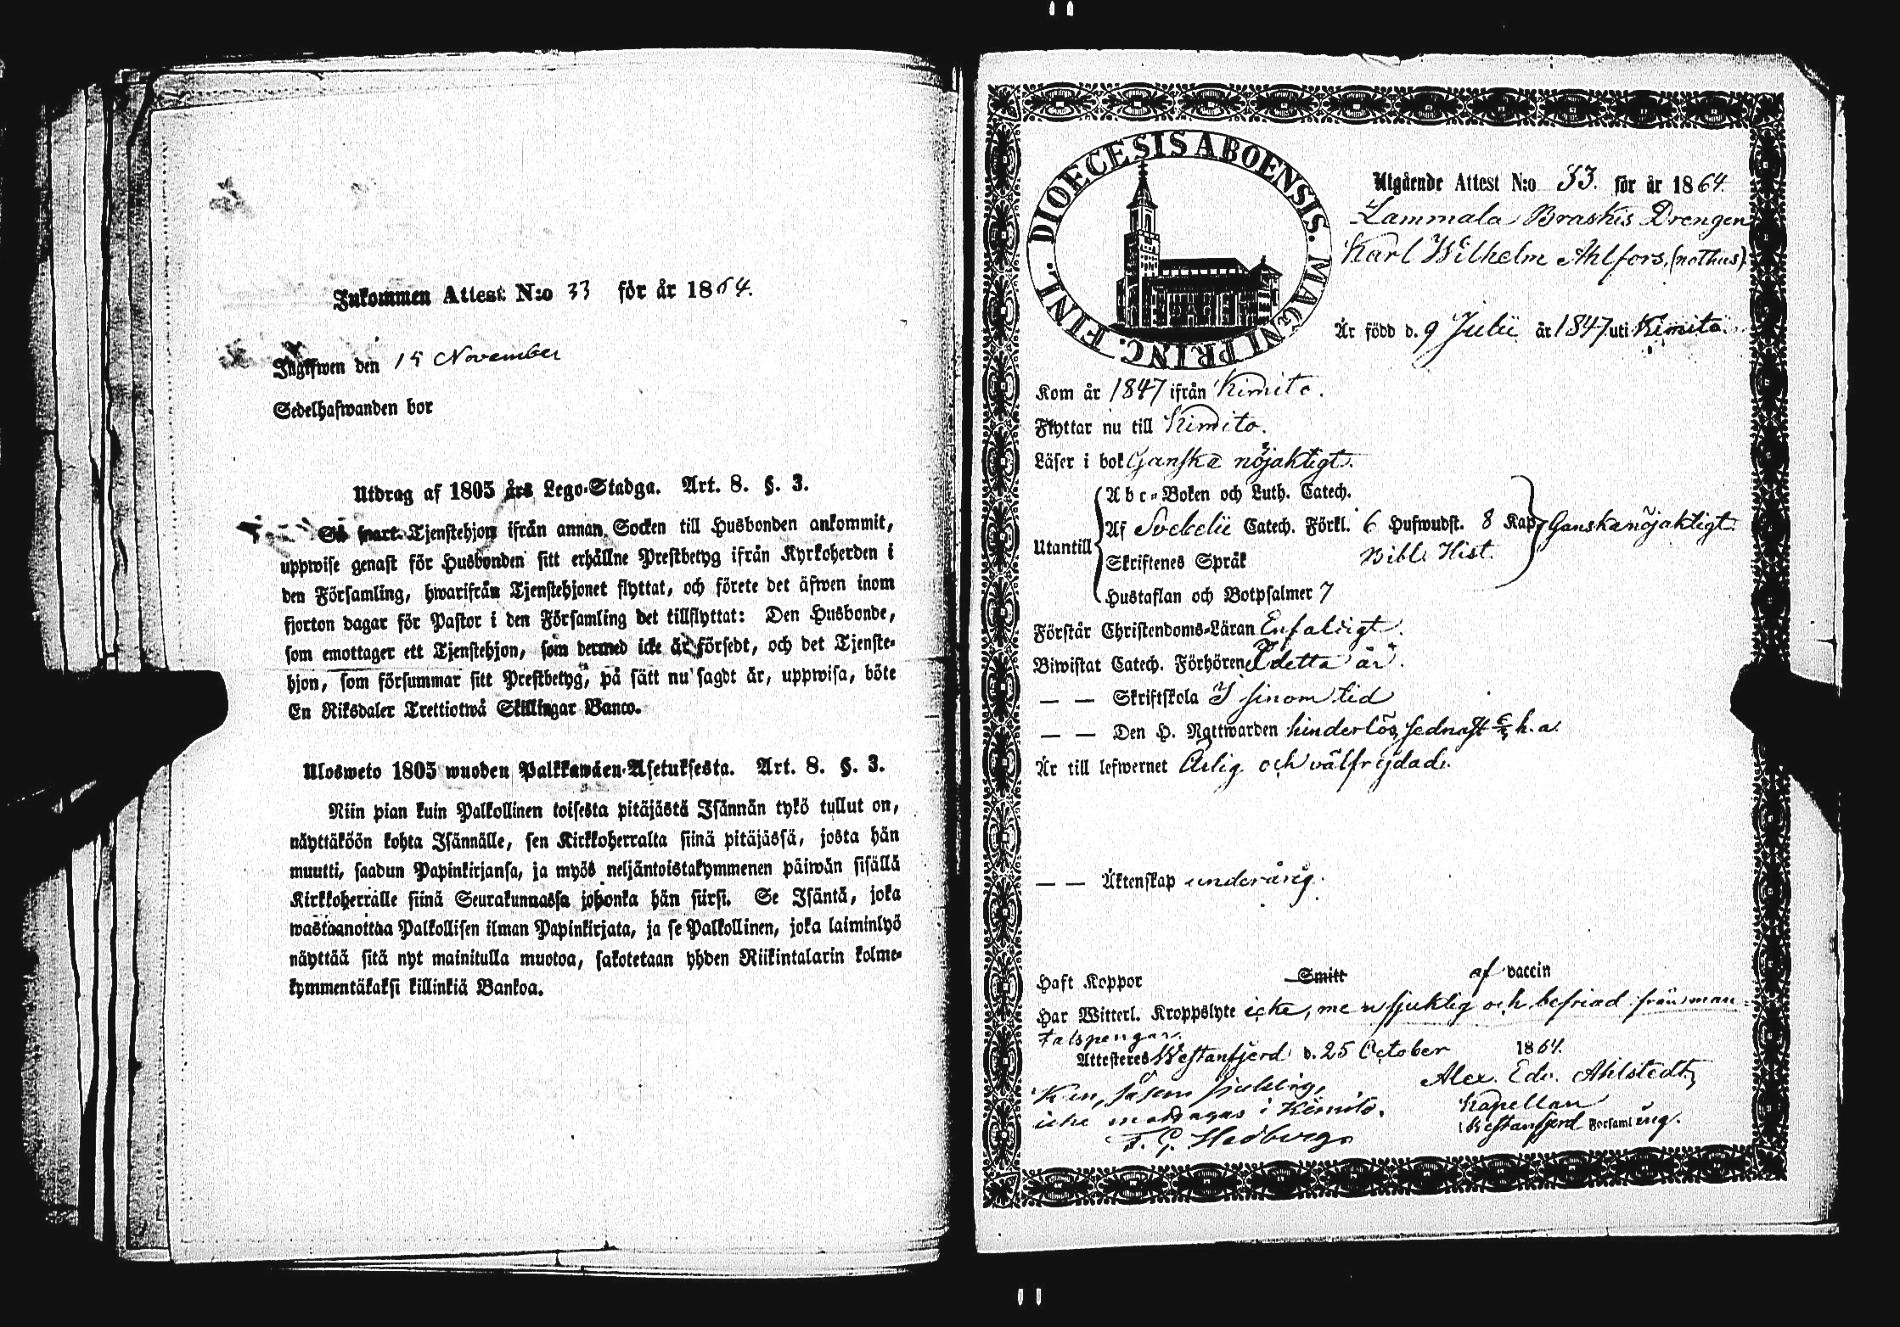 Inkommen Attest N:o 33 för år 1864.
Ingifwen den 15 November
Sedelhafwanden bor
Utdrag af 1805 års Lego-Stadga. Art. 8. §. 3.
Så snart Tjenstehjon ifrån annan Socken till Husbonden ankommit,
uppwise genast för Husbonden sitt erhållne Prestbetyg ifrån Kyrkoherden i
den Församling, hwarifrån Tjenstehjonet flyttat, och förete det äfwen inom
fjorton dagar för Pastor i den Församling det tillflyttat: Den Husbonde,
som emottager ett Tjenstehjon, som dermed icke är försedt, och det Tjenste-
hjon, som försummar sitt Prestbetyg, på sätt nu sagdt är, uppwisa, böte
En Riksdaler Trettiotwå Skillingar Banco.
Ulosweto 1805 wuoden Palkkawäen-Asetuksesta. Art. 8. §. 3.
Niin pian kuin Palkollinen toisesta pitäjästä Isännän tykö tullut on,
näyttäköön kohta Isännälle, sen Kirkkoherralta siinä pitäjässä, josta hän
muutti, saadun Papinkirjansa, ja myös neljäntoistakymmenen päiwän sisällä
Kirkkoherralle siinä Seurakunnassa johonka hän siirsi. Se Isäntä, joka
wastaanottaa Palkollisen ilman Papinkirjata, ja se Palkollinen, joka laiminlyö
näyttää sitä nyt mainitulla muotoa, sakotetaan yhden Riikintalarin kolme-
kymmentäkaksi killinkiä Bankoa.
DIOECESIS ABOENSIS. MAGNI PRINC. FINL.
Utgående Attest N:o 33. för år 1864.
Lammala Braskis Drengen
Karl Wilhelm Ahlfors, (nothus)
Är född d. 9 Julii år 1847 uti Kimito.
Kom år 1847 ifrån Kimito.
Flyttar nu till Kimito.
Läser i bok Ganska nöjaktigt.
Utantill
Abc-Boken och Luth. Catech.
Af Svebelii Catech. Förkl. 6 Hufwudst. 8 Kap. Ganska nöjaktigt.
Skriftenes Språk Bibl. Hist.
Hustaflan och Botpsalmer 7
Förstår Christendoms-Läran Enfaldigt.
Biwistat Catech. Förhören I detta år.
— — Skriftskola I sinom tid
— — Den H. Nattwarden hinderlös, sednast h. a.
Är till lefwernet Ärlig och välfrejdad.
— — Äktenskap underårig.
Haft Koppor Smitt af vaccin
Har Witterl. Kroppslyte icke, men sjuklig och befriad från man-
talspengar.
Attesteras Westanfjerd d. 25 October 1864.
Alex. Edv. Ahlstedt,
Kapellan
i Westanfjerd Församling.
Kan, såsom sjukling,
icke mottagas i Kimito.
F. G. Hedberg